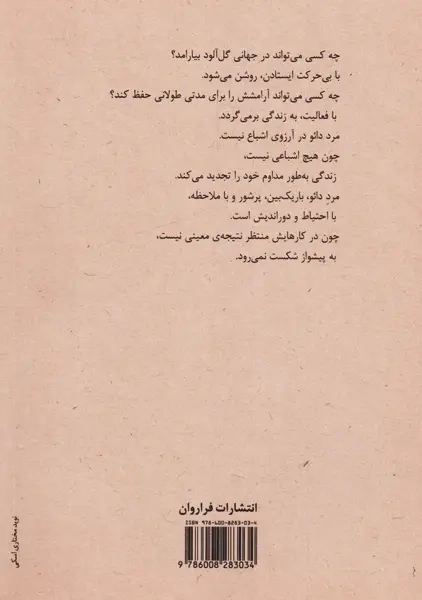 چه کسی می‌تواند در جهانی گل‌آلود بیارامد؟
با بی‌حرکت ایستادن، روشن می‌شود.
چه کسی می‌تواند آرامشش را برای مدتی طولانی حفظ کند؟
با فعالیت، به زندگی برمی‌گردد.
مرد دائو در آرزوی اشباع نیست.
چون هیچ اشباعی نیست،
زندگی به‌طور مداوم خود را تجدید می‌کند.
مردِ دائو، باریک‌بین، پرشور و با ملاحظه،
با احتیاط و دوراندیش است.
چون در کارهایش منتظر نتیجه‌ی معینی نیست،
به پیشواز شکست نمی‌رود.
انتشارات فراروان
ISBN 978-600-8283-03-4
9 786008 283034
نوید مختاری اسکی